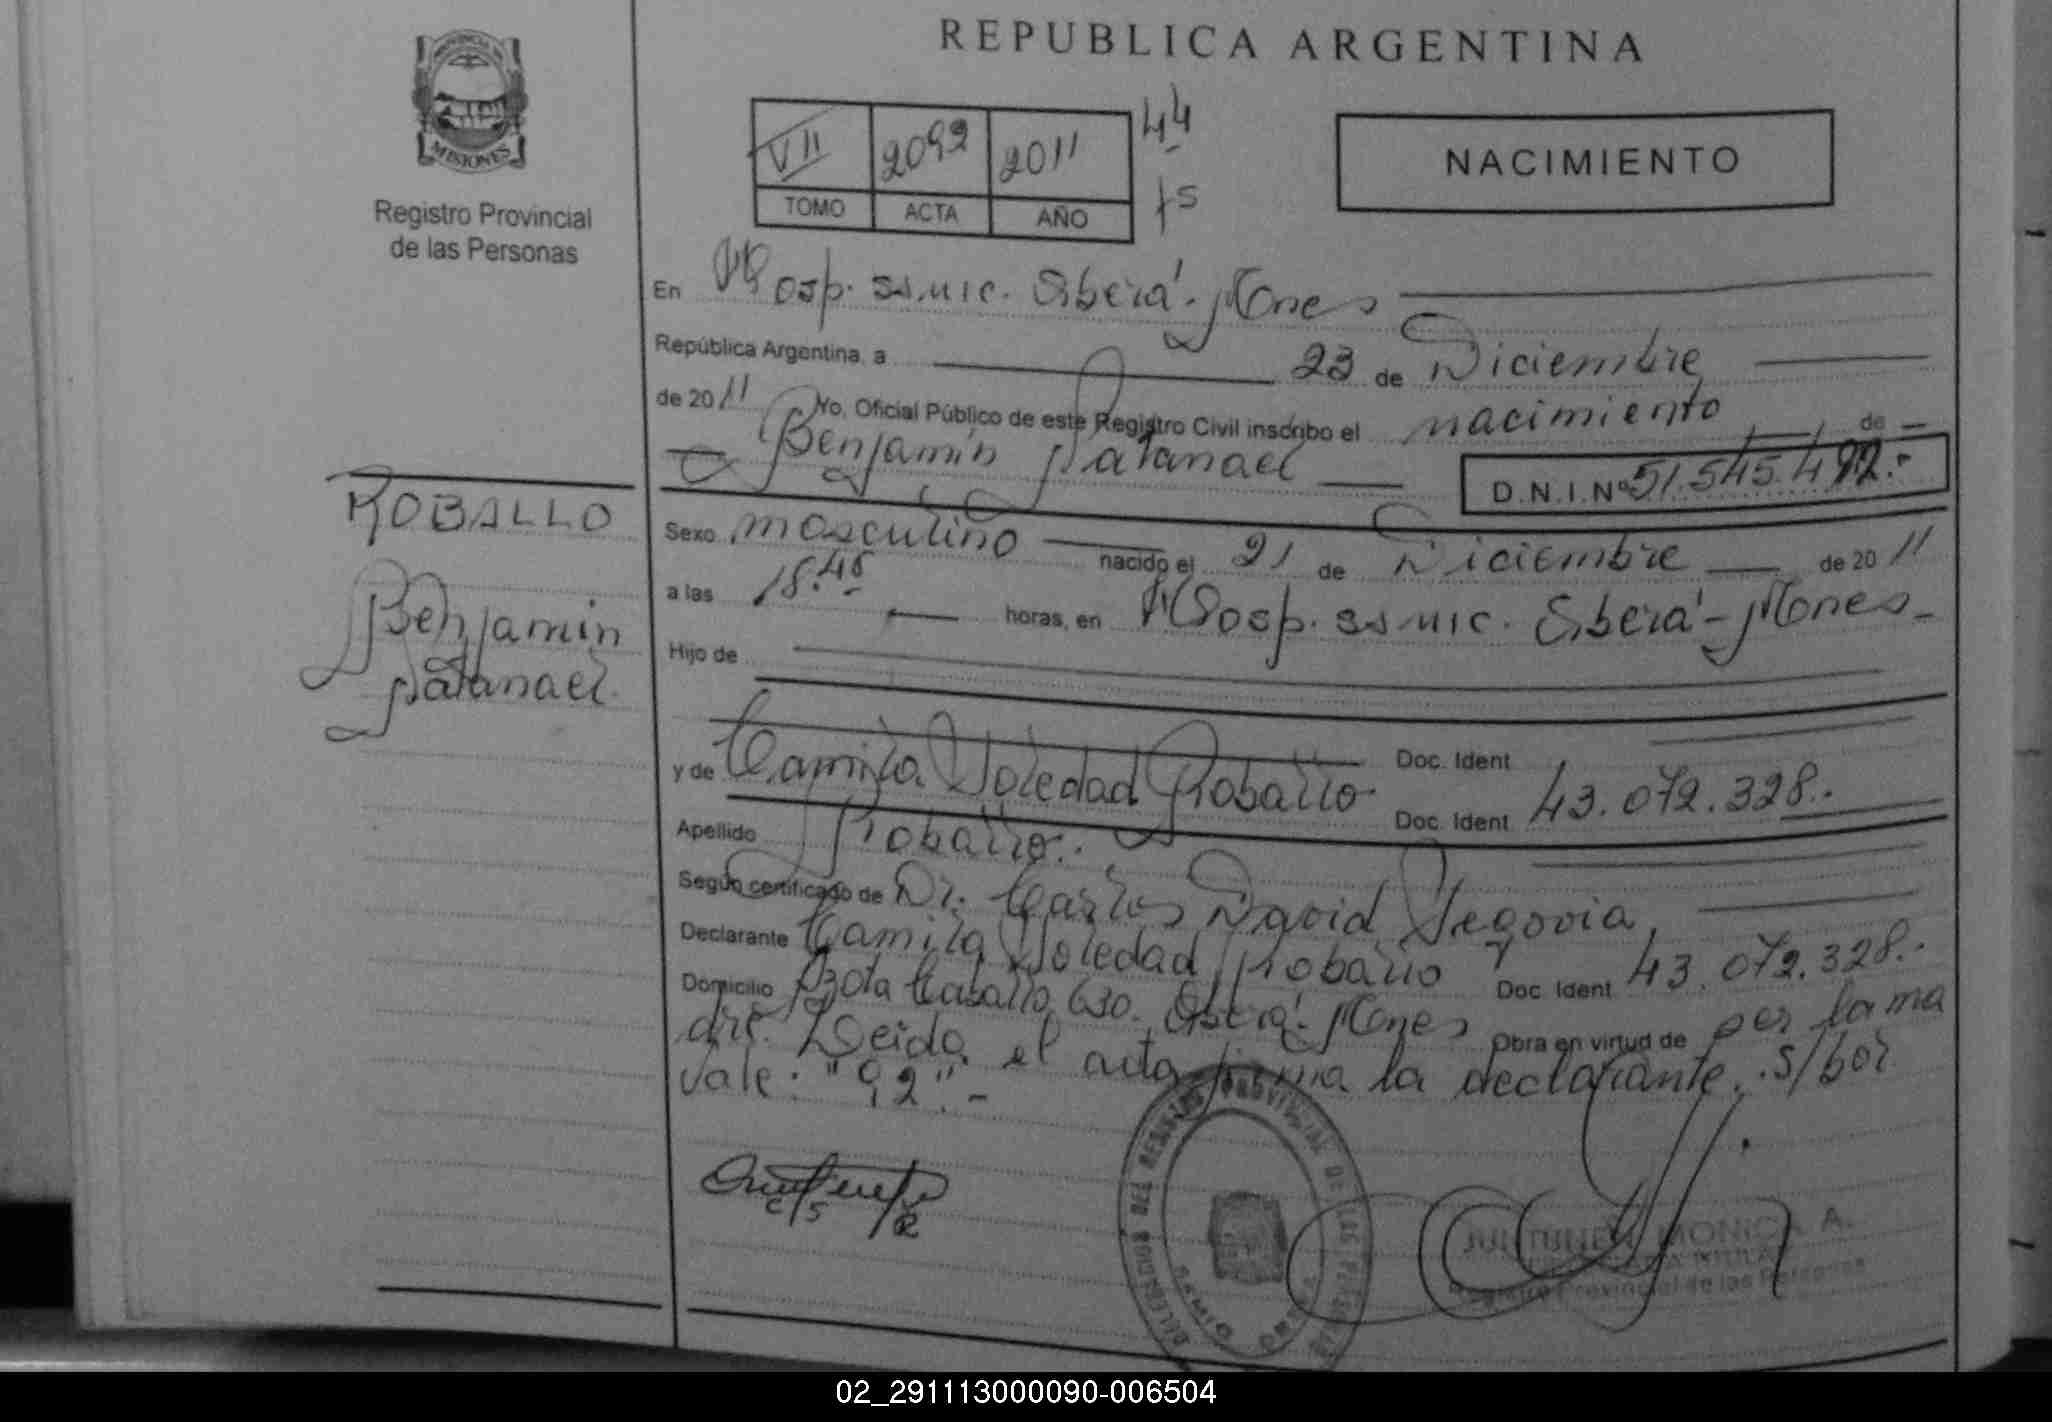 REPUBLICA ARGENTINA
PROVINCIA DE
MISIONES
Registro Provincial
de las Personas
VII 2092 2011
TOMO ACTA AÑO
44
75
NACIMIENTO
En Hosp. SS.MIC. Oberá. Mones
República Argentina, a 23 de Diciembre
de 2011 Yo, Oficial Público de este Registro Civil inscribo el nacimiento de
Benjamín Natanael D.N.I.Nº 51.545.492.-
ROBALLO
Benjamín
Natanael.
Sexo masculino nacido el 21 de Diciembre de 2011
a las 18.45 horas, en Hosp. SS.MIC. Oberá - Mones -
Hijo de
Doc. Ident
y de Camila Soledad Roballo Doc. Ident 43.072.328.-
Apellido Roballo.-
Según certificado de Dr. Carlos David Segovia,
Declarante Camila Soledad Roballo Doc. Ident 43.072.328.-
Domicilio 630. Oberá. Mones Obra en virtud de ser la ma
dre. Leida el acta firma la declarante. S/bor
Vale: "92".-
DEL REGISTRO PROVINCIAL DE LAS PERSONAS
MONICA A.
Registro Provincial de las Personas
02_291113000090-006504